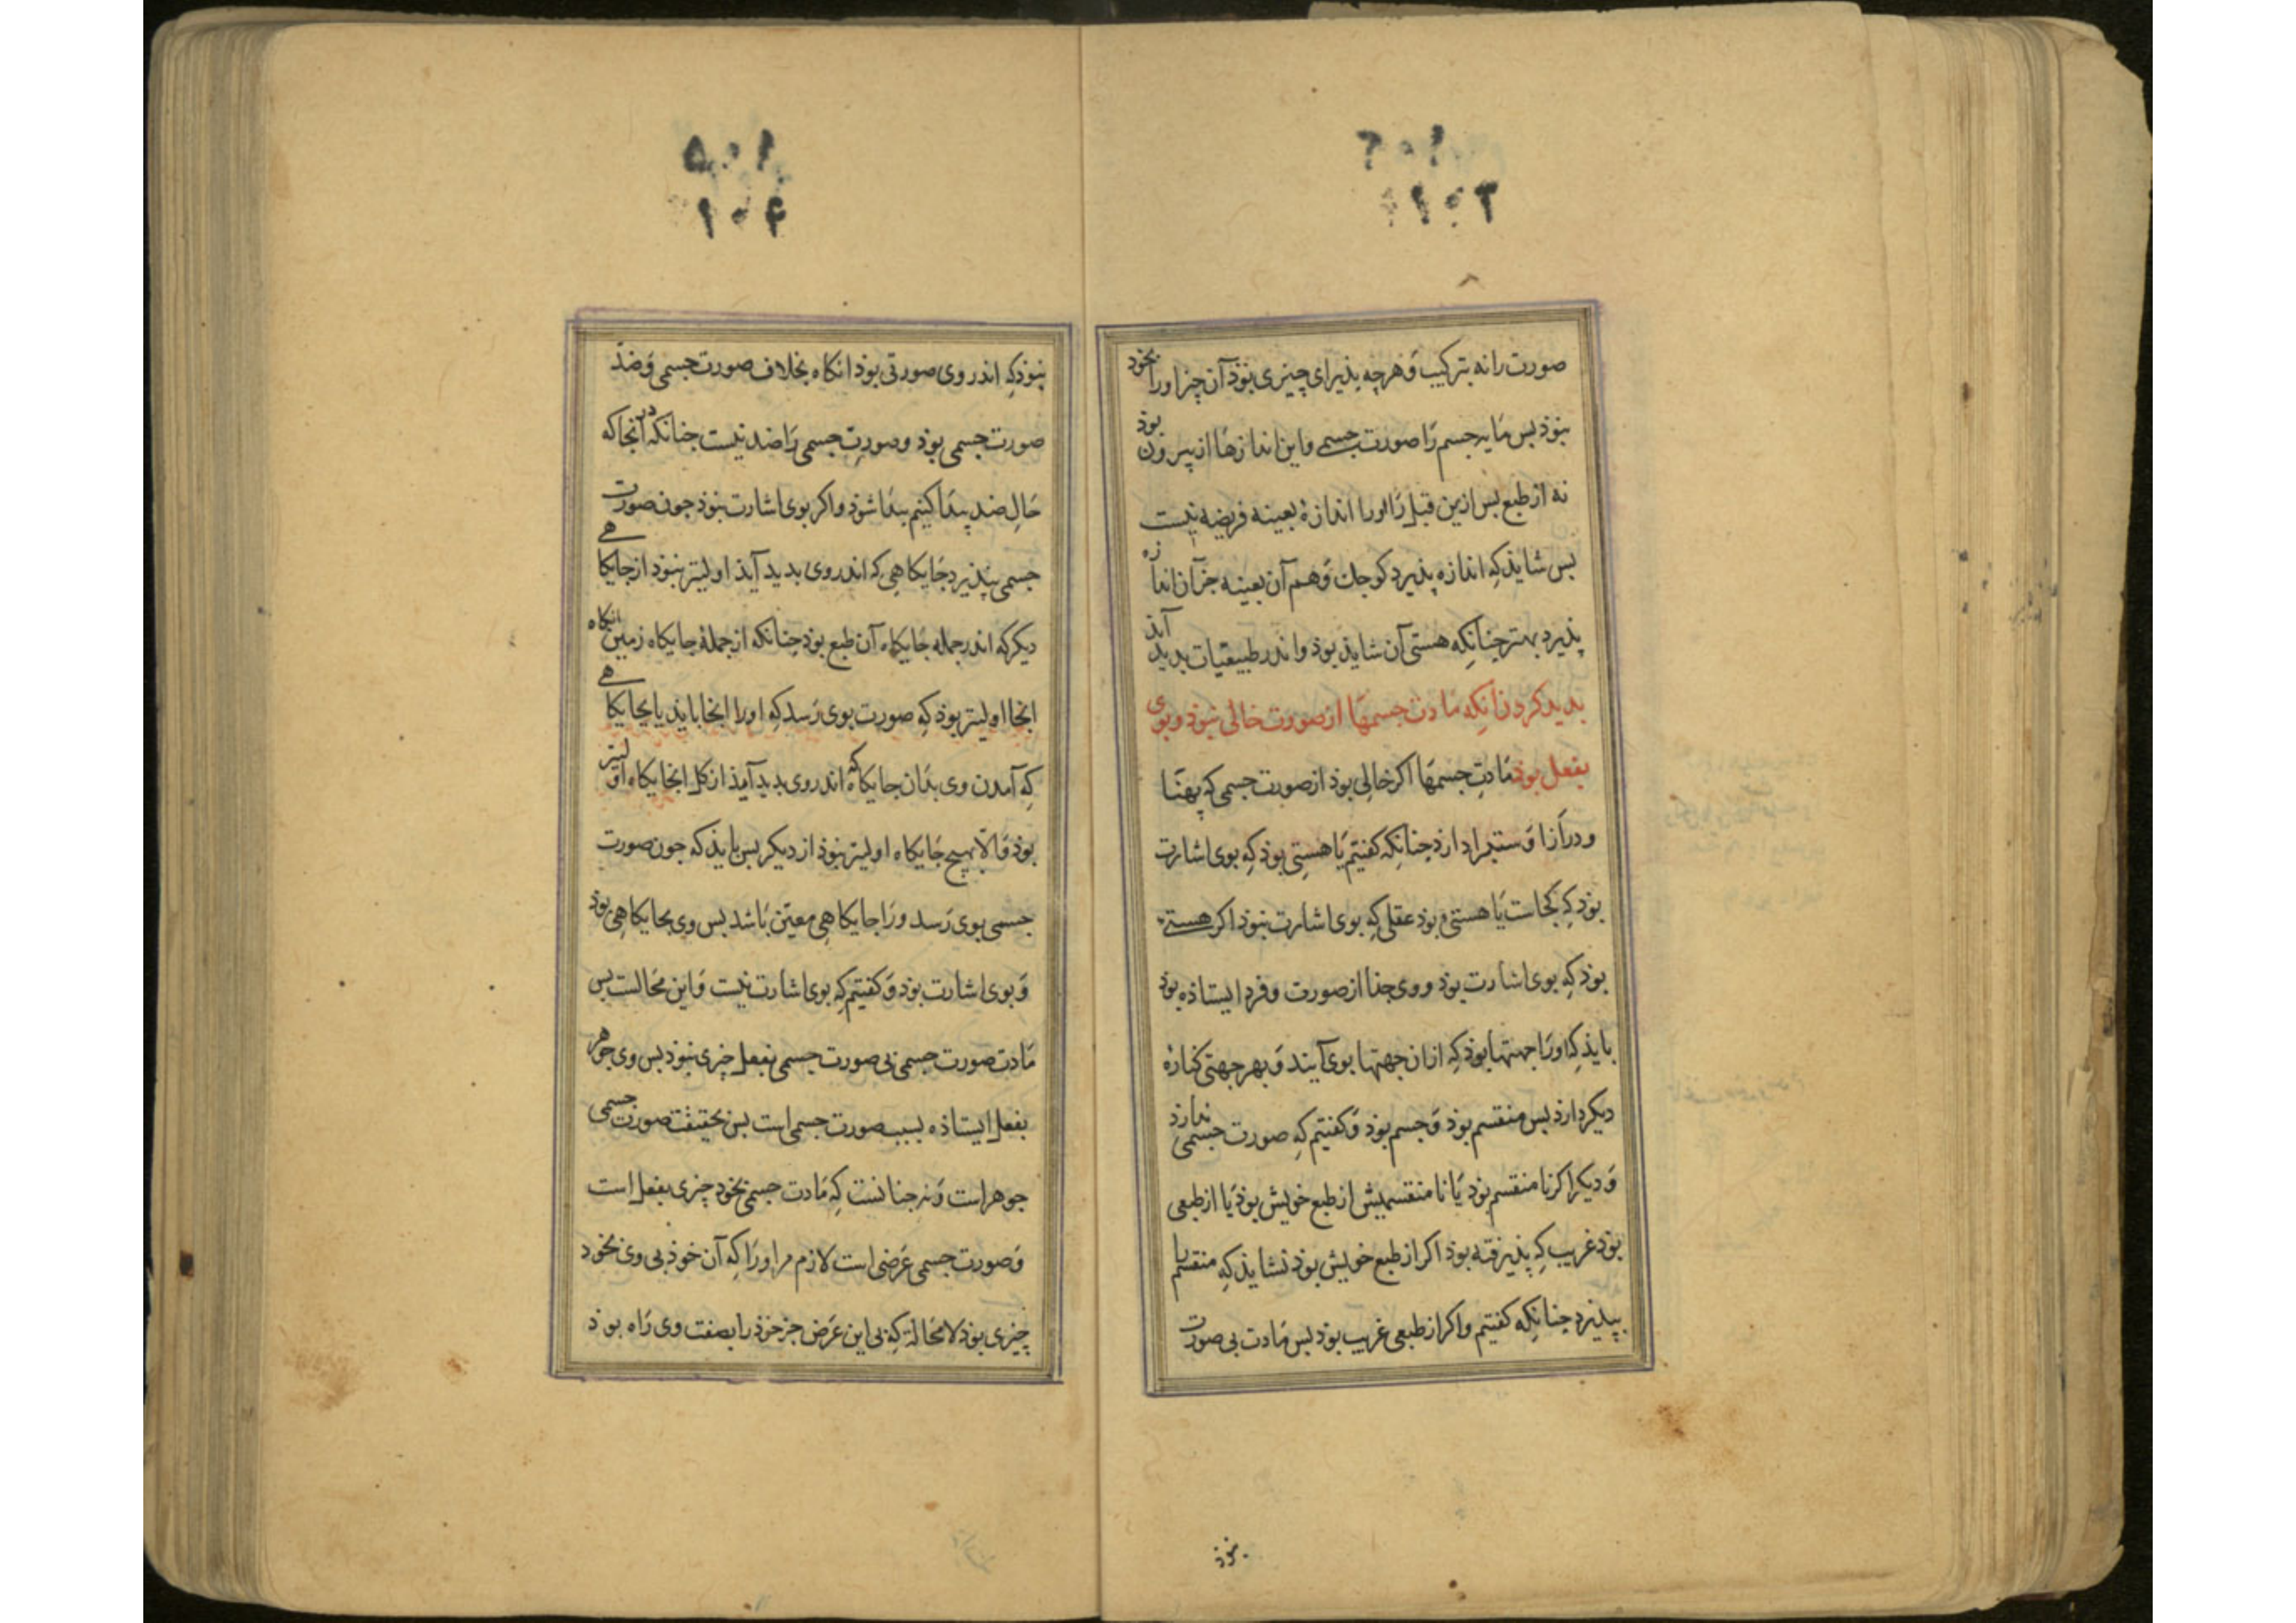 ۱۰۳
صورت را نه بترکیب و هرچه پذیرای چیزی بوذ آن چیز اورا بخوذ
نبوذ بس مایه جسم را صورت جسمی و این اندازها از بیرون بوذ
نه از طبع بس ازین قبل را اورا اندازهٔ بعینه فریضه نیست
بس شایذ که اندازه پذیرد کوجک و هم آن بعینه جز آن اندازه
پذیرد بهتر جنانکه هستی آن شاید بوذ و اندر طبیعیات بدید آیذ
بدید کردن آنکه مادت جسمها از صورت خالی نبوذ و بوی
بفعل بوذ مادت جسمها اگر خالی بوذ از صورت جسمی که پهنا
و درازا و ستبرا دارد جنانکه کفتیم یا هستیی بوذ که بوی اشارت
بوذ که کجاست یا هستیی بوذ عقلی که بوی اشارت نبوذ اکر هستیی
بوذ که بوی اشارت بوذ و وی جذا از صورت و فرد ایستاذه بوذ
بایذ که اورا جهتها بوذ که ازان جهتها بوی آیند و بهر جهتی کنارهٔ
دیکر دارذ بس منقسم بوذ و جسم بوذ و کفتیم که صورت جسمی ندارذ
و دیکر اکر نا منقسم بوذ یا نا منقسمیش از طبع خویش بوذ یا از طبعی
بوذ غریب که پذیرفته بوذ اکر از طبع خویش بوذ نشایذ که منقسم یا
بپذیرد جنانکه کفتیم و اکر از طبعی غریب بوذ بس مادت بی صورت
نبوذ
۱۰۵
۱۰۴
نبوذ که اندر وی صورتی بوذ انکاه بخلاف صورت جسمی و ضدّ
صورت جسمی بوذ و صورت جسمی را ضد نیست جنانکه در آنجا که
حال ضد پیدا کنیم بیدا شوذ و اکر بوی اشارت نبوذ جون صورت
جسمی بپذیرد جایکاهی که اندر وی بدید آیذ اولیتر نبوذ از جایکاهی
دیکر که اندر جمله جایکاه آن طبع بوذ جنانکه از جملهٔ جایکاه زمین انکاه
انجا اولیتر بوذ که صورت بوی رسد که اورا انجا یابد یا بجایکاهی
که آمدن وی بذان جایکاه که اندر وی بدید آمذ از کل انجایکاه اولیتر
بوذ و الّا بهیچ جایکاه اولیتر نبوذ از دیکر بس بایذ که جون صورت
جسمی بوی رسد ورا جایکاهی معین باشد بس وی بجایکاهی بوذ
و بوی اشارت بوذ و کفتیم که بوی اشارت نیست و این محالست بس
مادت صورت جسمی بی صورت جسمی بفعل چیزی نبوذ بس وی جوهر
بفعل ایستاذه بسبب صورت جسمی است بس بحقیقت صورت جسمی
جوهر است و نه جنانست که مادت جسمی بخود چیزی بفعل است
و صورت جسمی عرضی است لازم مر اورا که آن خوذ بی وی بخود
چیزی بوذ لا محالة که بی این عرض جز خوذ را بصفت وی راه بوذ